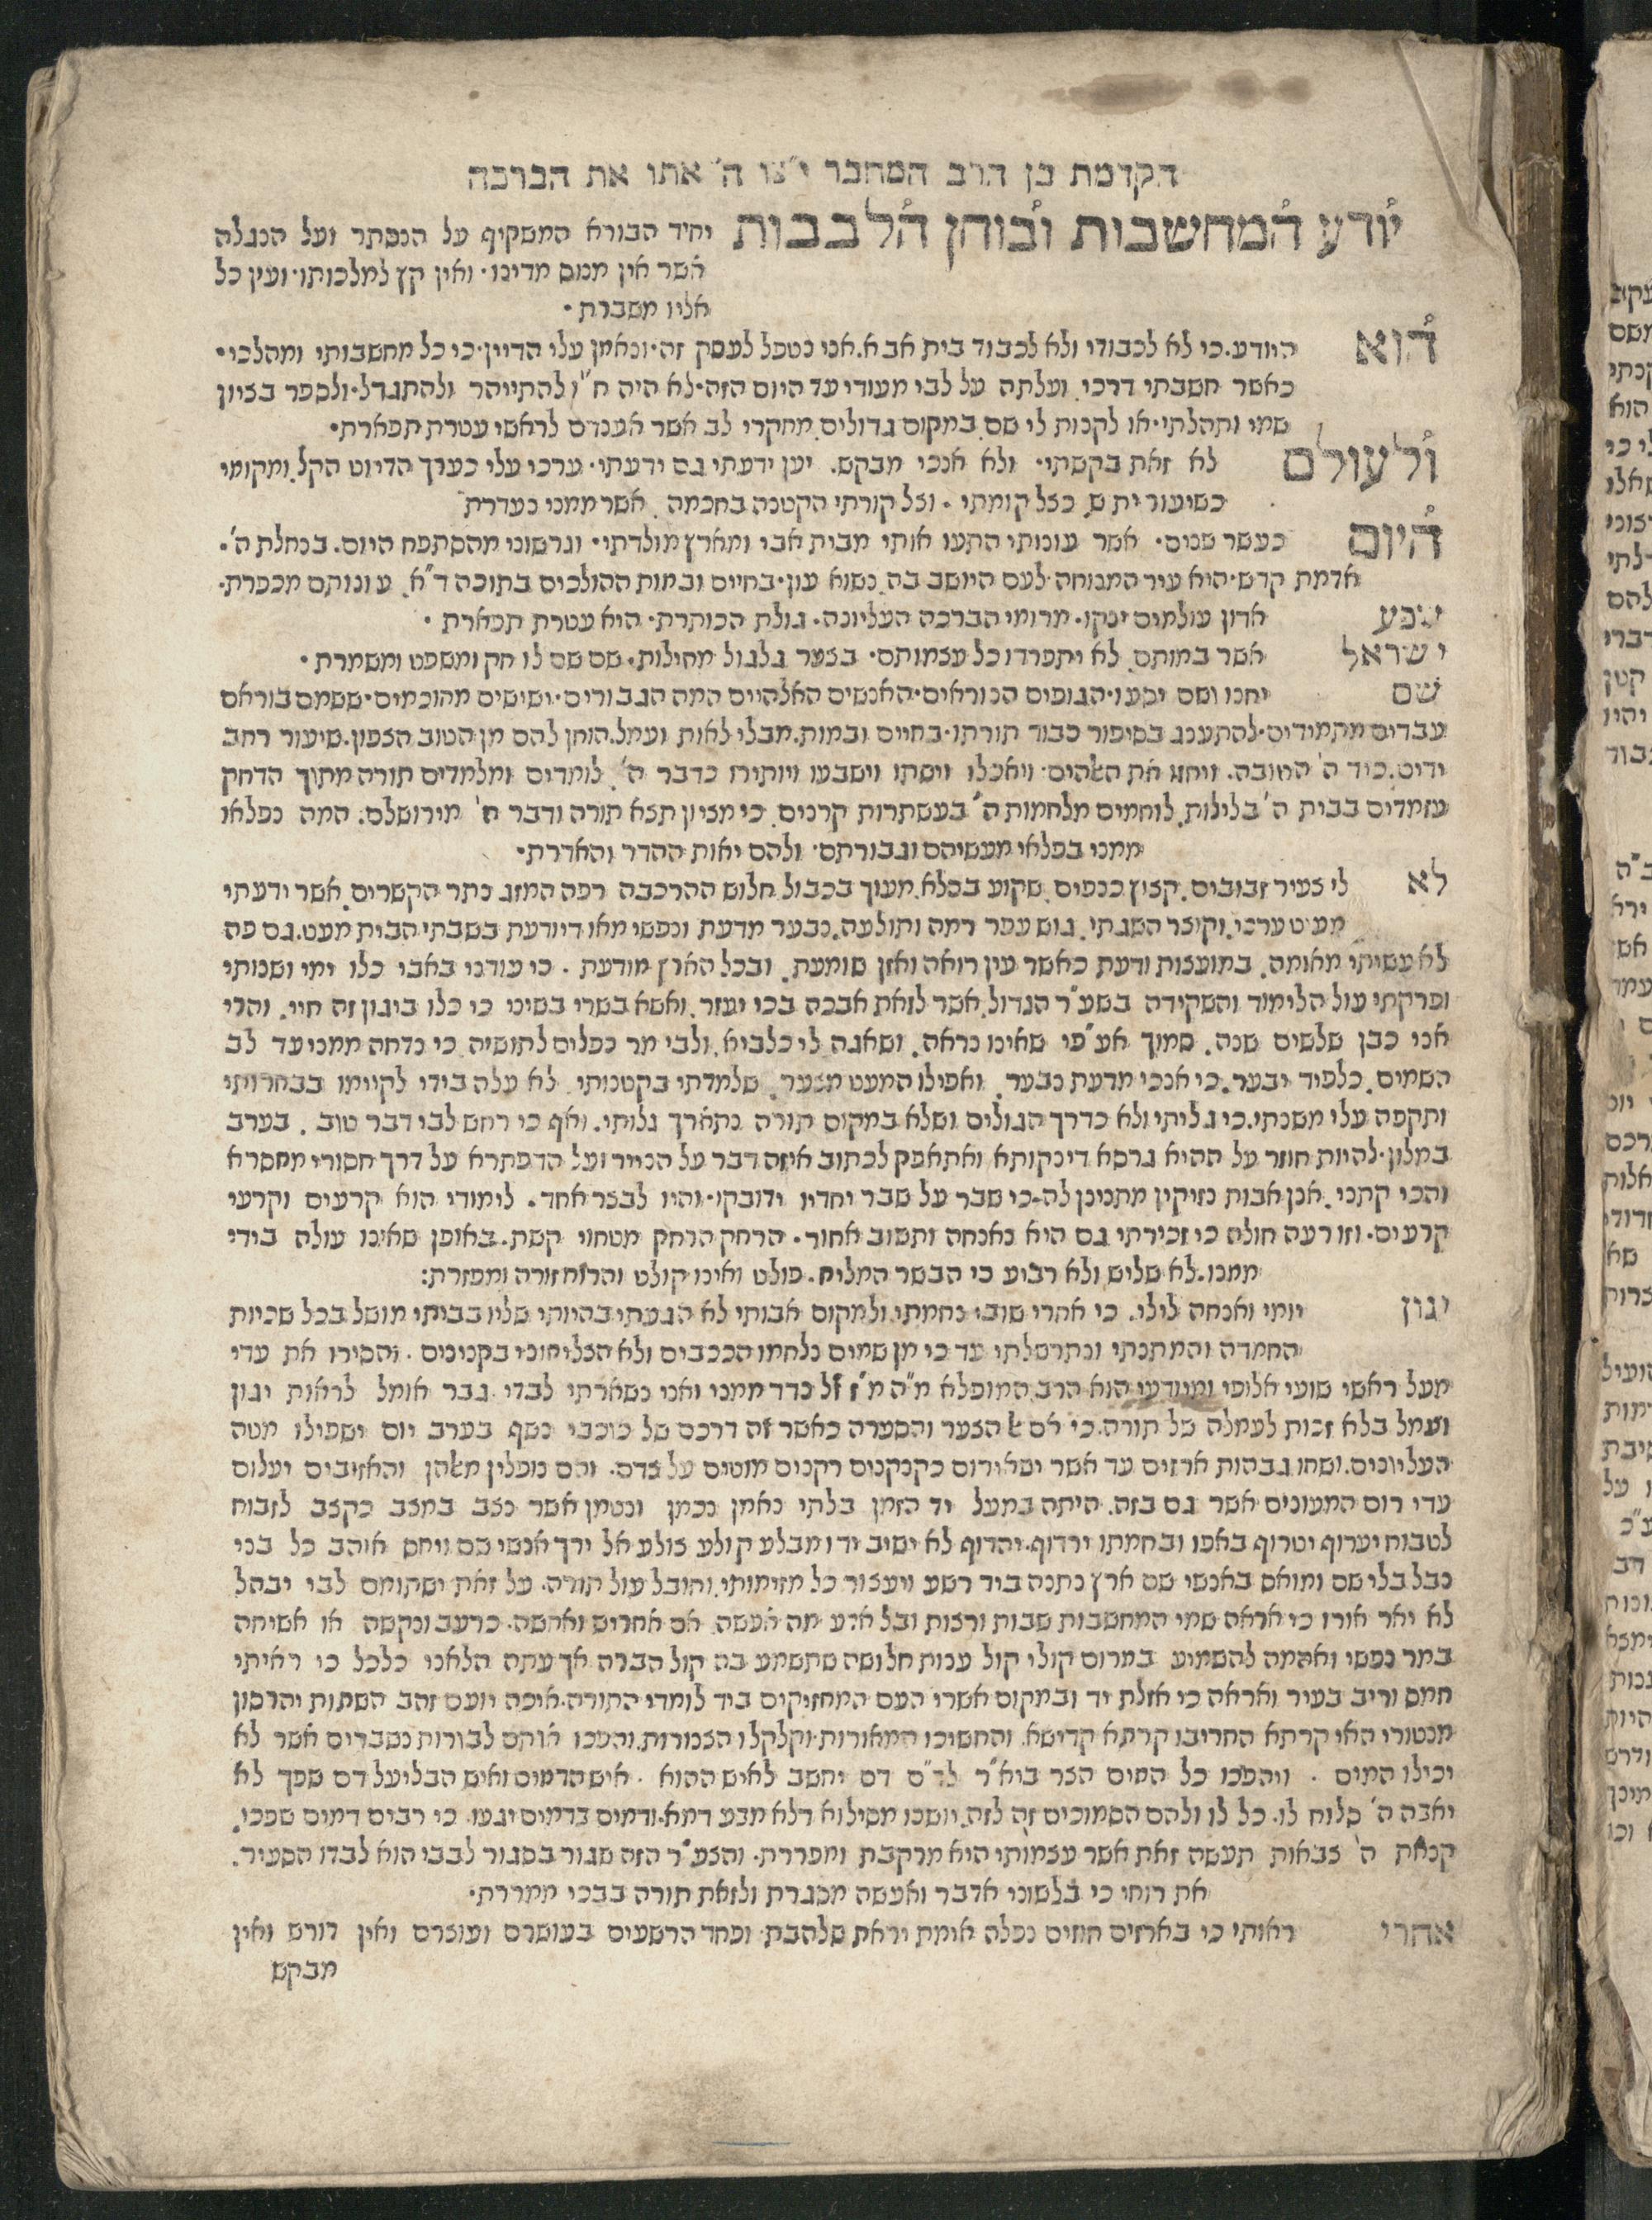 הקדמת בן הרב המחבר יצ״ו ה׳ אתו את הברכה
יודע המחשבות ובוחן הלבבות יחיד הבורא המשקיף על הנסתר ועל הנגלה
אשר אין מנוס מדינו· ואין קץ למלכותו· ועין כל
אליו משברת·
הוא היודע. כי לא לכבודי ולא לכבוד בית אבא. אני נטפל לעסק זה· ונאמן עלי הדיין· כי כל מחשבותי ומהלכי·
כאשר חשבתי דרכי. ועלתה על לבי מעודי עד היום הזה· לא היה ח״ו להתייהר ולהתגדל· ולספר בציון
שמי ותהלתי· או לקנות לי שם במקום גדולים מחקרי לב אשר אענדם לראשי עטרת תפארת·
ולעולם לא זאת בקשתי· ולא אנכי מבקש. יען ידעתי גם ידעתי· ערכי עלי כערך הדיוט הקל ומקומי
כשיעור ית ש כצל קומתי· וצל קורתי הקטנה בחכמה אשר ממני נעדרת
היום כעשר שנים· אשר עונותי התעו אותי מבית אבי ומארץ מולדתי· וגרשוני מהסתפח היום. בנחלת ה׳·
אדמת קדש· היא עיר המנוחה לעם היושב בה נשוא עון· בחיים ובמות ההולכים בתוכה ד״א עונותם מכפרת·
שבע אדון עולמים ינקו· מרומי הברכה העליונה· גולת הכותרת· היא עטרת תפארת·
ישראל אשר במותם לא יתפרדו כל עצמותם· בצער גלגול מחילות· שם שם לו חק ומשפט ומשמרת·
שם יחנו ושם יסעו· הגופים הנוראים· האנשים האלהיים המה הגבורים· ישישים מהוכמים· ששמם בוראם
עבדים מתמידים· להתענג בסיפור כבוד תורתו· בחיים ובמות. מבלי לאות ועמל. הוחן להם מן הטוב הצפון. שיעור רחב
ידים. כיד ה׳ הטובה. ויחזו את האלהים· ויאכלו וישתו וישבעו ויותירו כדבר ה׳ לומדים ומלמדים תורה מתוך הדחק
עומדים בבית ה׳ בלילות. לוחמים מלחמות ה׳ בעשתרות קרנים. כי מציון תצא תורה ודבר ה׳ מירושלם. המה נפלאו
ממני בפלאי מעשיהם וגבורתם· ולהם יאות ההדר והאדרת·
לא לי צעיר זבובים. קצוץ כנפים שקוע בכלא. מעוך בכבול. חלוש ההרכבה רפה המזג נתר הקשרים. אשר ידעתי
מעיט ערכי. וקוצר השגתי. גוש עפר רמה ותולעה. כבער מדעת ונפשי מאו דיודעת בשבתי הבית מעט. גם פה
לא עשיתי מאומה. במועצות ודעת כאשר עין רואה ואזן שומעת. ובכל הארץ מודעת. כי עודני באבי כלו ימי ושנותי
ופרקתי עול הלימוד והשקידה בשע״ר הגדול אשר לזאת אבכה בכי יעזר. ואשא בשרי בשיני כי כלו ביגון זה חיי. והרי
אני כבן שלשים שנה. סמוך אע״פי שאינו נראה. ושאגה לי כלביא. ולבי מר כפלים לתושיה כי נדחה ממני עד לב
השמים. כלפיד יבער. כי אנכי מדעת נבער. ואפילו המעט מצער. שלמדתי בקטנותי. לא עלה בידי לקיימו בבחרותי
ותקפה עלי משנתי. כי גליתי ולא כדרך הגולים ושלא במקום תורה נתארך גלותי. ואף כי רחש לבי דבר טוב. בערב
במלון· להיות חוזר על ההיא גרסא דינקותא ואתאפק לכתוב איזה דבר על הנייר ועל הדפתרא על דרך חסורי מחסרא
והכי קתני. אכן אבות נזיקין מתניכן לה· כי שבר על שבר יחדיו ידובקו· והיו לבצר אחד. לימודי הוא קרעים וקרעי
קרעים· וזו רעה חולה כי זכירתי גם היא נאנחה ותשוב אחור. הרחק הרחק מטחוי קשת. באופן שאינו עולה בידי
ממנו. לא שליש ולא רביע כי הבשר המליח. פולט ואינו קולט והרוח זורה ומפזרת:
יגון יומי ואנחה לילי. כי אחרי שובי נחמתי ולמקום אבותי לא הגעתי בהיותי שליו בביתי מושל בכל שכיות
החמדה והמתנתי ונתרשלתי עד כי מן שמים נלחמו הככבים ולא הצליחוני בקנינים. והסירו את עדי
מעל ראשי שועי אלופי ומיודעי הוא הרב המופלא מ״ה מ״ז זל נדד ממני ואני נשארתי לבדי גבר אומל לראות יגון
ועמל בלא זכות לעמלה של תורה. כי אם אל הצער והסערה כאשר זה דרכם של כוכבי נשף בערב יום ישפילו מטה
העליונים. ושחו גבהות ארזים עד אשר ישאירום כקנקנים רקנים מוטים על צדם. והם נופלין מאלהן והאזובים יעלום
עדי רום המעונים אשר גם בזה. היתה במעל יד הזמן בלתי נאמן נכמן ונטמן אשר נצב במצב כקצב לזבוח
לטבוח יערוף יטרוף באפו ובחמתו ירדוף. יהדוף לא ישיב ידו מבלע קולע צולע אל ירך אנשי שם ויחם אוהב כל בני
נבל בלי שם ומואס באנשי שם ארץ נתנה ביד רשע ויעצור כל מזימותי. וחובל עול תורה. על זאת ישתומם לבי יבהל
לא יאר אורו כי אראה שמי המחשבות שבות ורצות ובל אדע מה אעשה. אם אחריש ואחשה. כרעב ונקשה או אשיחה
במר נפשי ואהמה להשמיע במרום קולי קול ענות חלושה שתשמע בה קול הברה אך עתה הלאני כלכל כי ראיתי
חמס וריב בעיר ואראה כי אזלת יד ובמקום אשרי העם המחזיקים ביד לומדי התורה. איכה יועם זהב השתות יהרסון
מנטורי האי קרתא החריבו קרתא קדישא. והחשיכו המאורות וקלקלו הצנורות. והפכו אותם לבורות נשברים אשר לא
יכילו המים. ויהפכו כל המים הצר ביא״ר לד״ם דם יחשב לאיש ההוא. איש הדמים ואיש הבליעל דם שפך לא
יאבה ה׳ סלוח לו· כל לו ולהם הסמוכים זה לזה. יושכו מסילוא דלא מבע דמא· ודמים בדמים יגעו. כי רבים דמים שפכו.
קנאת ה׳ צבאות תעשה זאת אשר עצמותי היא מרקבת ומפררת. והצע״ר הזה סגור בסגור לבבי הוא לבדו הסעיר.
את רוחי כי בלשוני אדבר ואעשה מכגרת ולזאת תורה בבכי ממררת·
אחרי ראותי כי בארזים חוזים נפלה אימת יראת שלהבת· ופחד הרשעים בעושרם ועוצרם ואין דורש ואין
מבקש